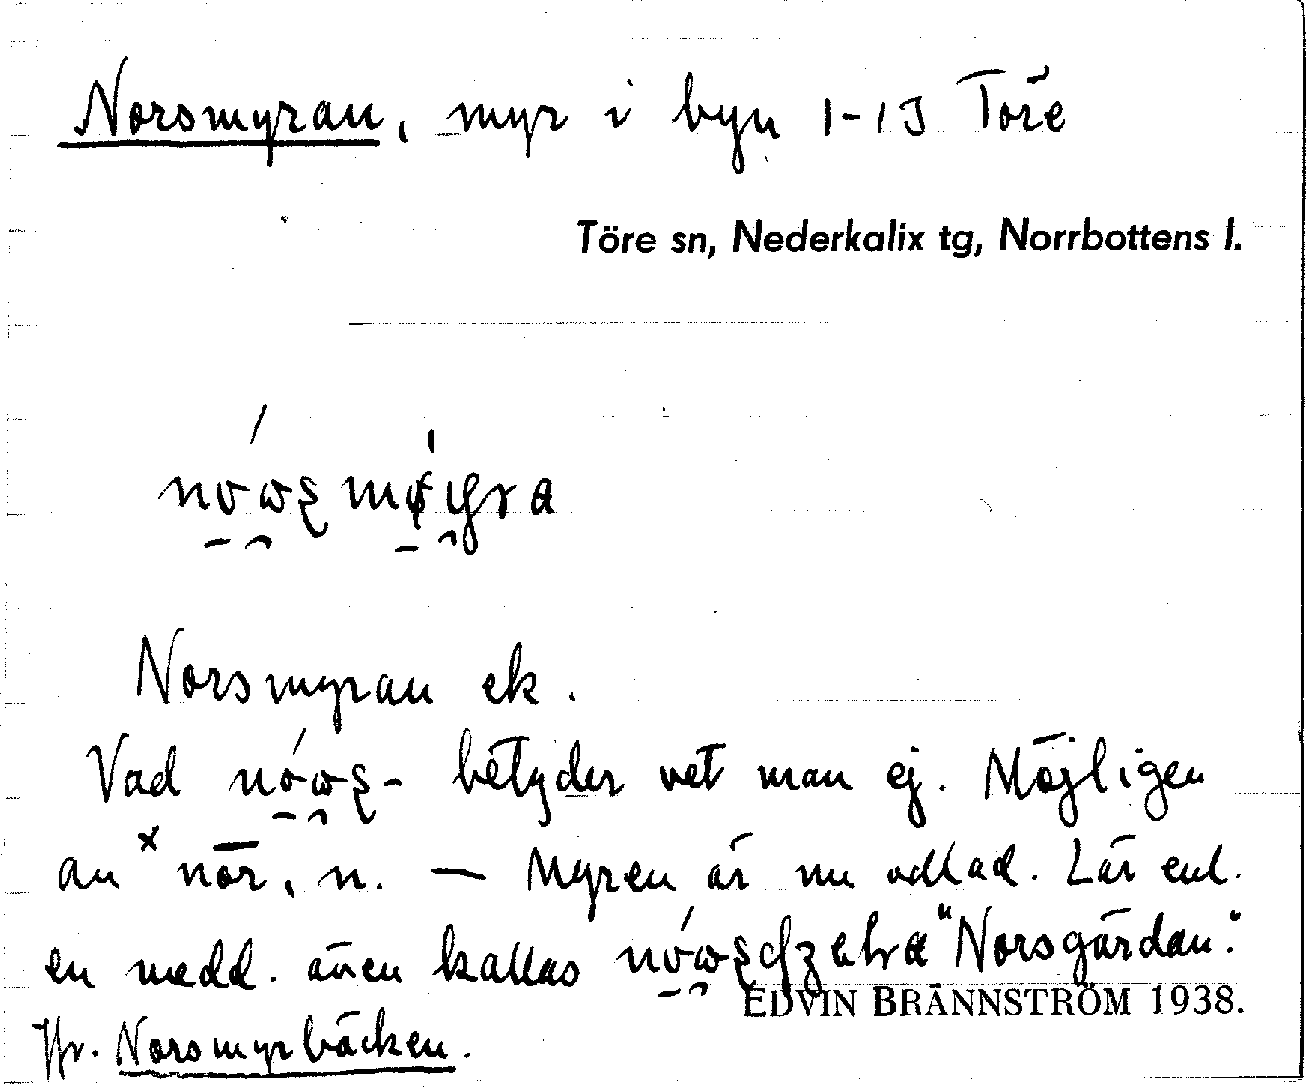 Norsmyran, myr i byn 1-13 Töre
Töre sn, Nederkalix tg, Norrbottens l.
Norsmyran ek.
Vad betyder vet man ej. Möjligen
an ˣnōr, n. — Myren är nu odlad. Lär enl.
en medd. även kallas "Norsgärdan".
EDVIN BRÄNNSTRÖM 1938.
Jfr. Norsmyrbäcken.